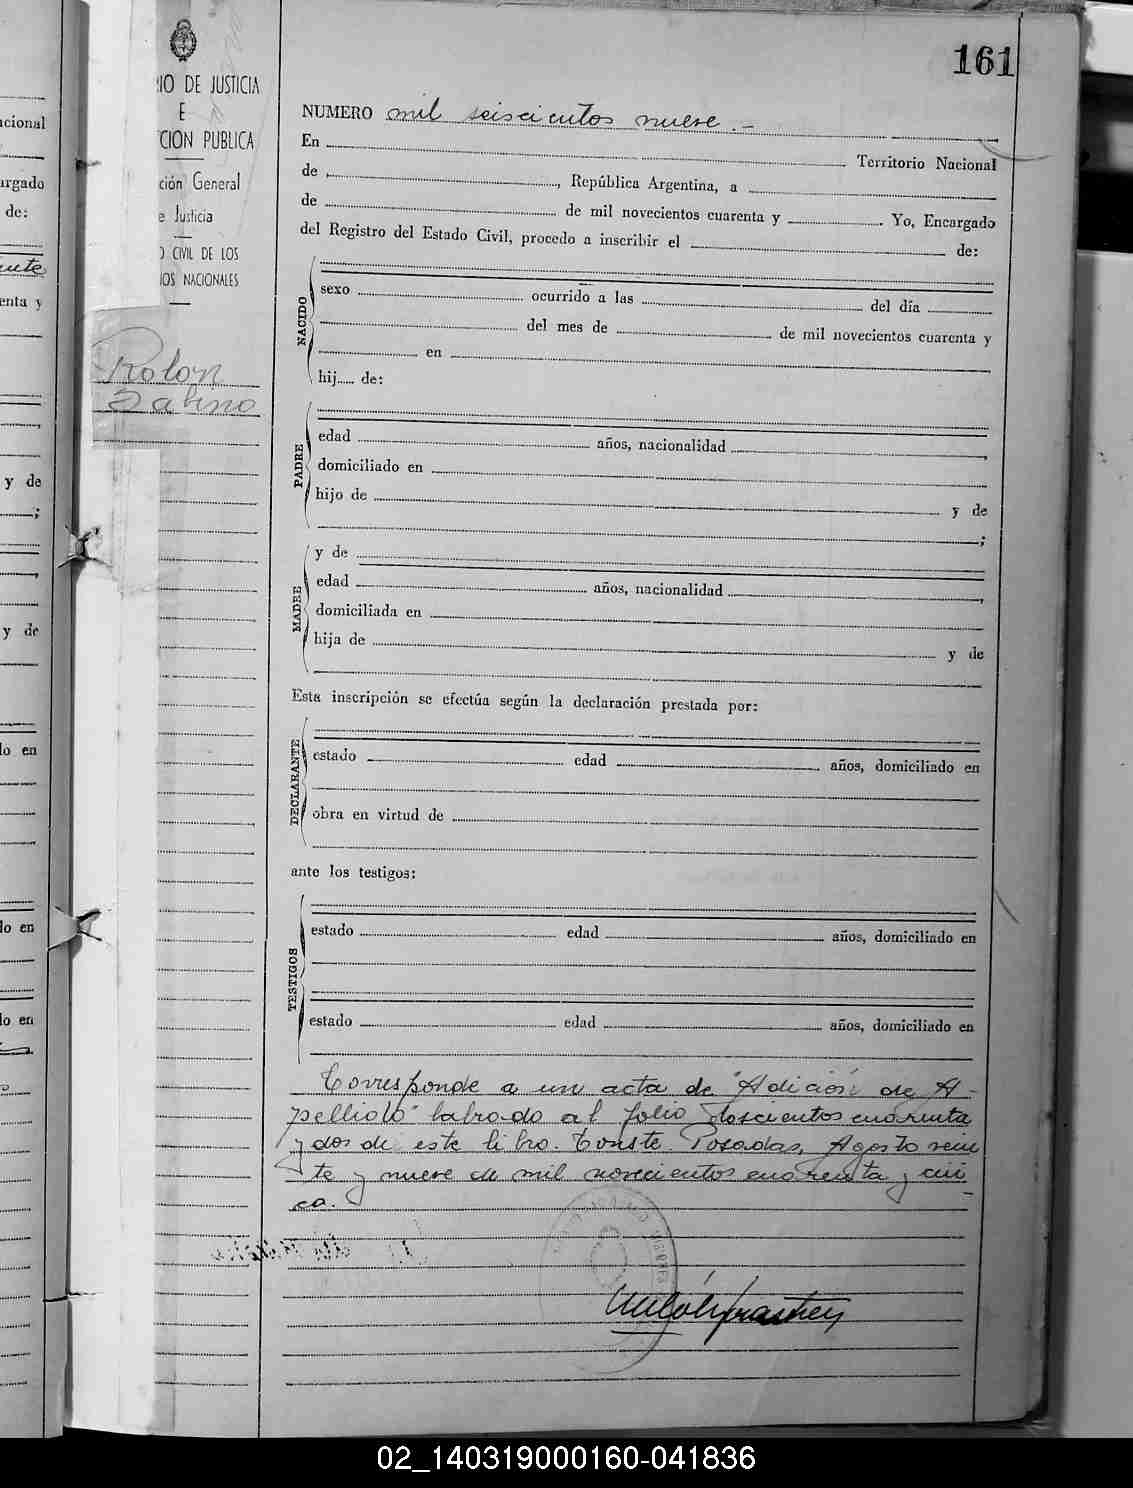 161
IO DE JUSTICIA
E
CION PUBLICA
ción General
e Justicia
CIVIL DE LOS
IOS NACIONALES
Rolon
Sabino
NUMERO mil seiscientos nueve.-
En Territorio Nacional
de , República Argentina, a
de de mil novecientos cuarenta y . Yo, Encargado
del Registro del Estado Civil, procedo a inscribir el de:
NACIDO
sexo ocurrido a las del día
del mes de de mil novecientos cuarenta y
en
hij..... de:
PADRE
edad años, nacionalidad ,
domiciliado en
hijo de y de
;
MADRE
y de
edad años, nacionalidad ,
domiciliada en
hija de y de
Esta inscripción se efectúa según la declaración prestada por:
DECLARANTE
estado edad años, domiciliado en
obra en virtud de
ante los testigos:
TESTIGOS
estado edad años, domiciliado en
estado edad años, domiciliado en
Corresponde a un acta de "Adición de A-
pellido" labrado al folio doscientos cuarenta
y dos de este libro. Conste. Posadas, Agosto vein
te y nueve de mil novecientos cuarenta y cin
co.
acional
argado
de:
enta y
y de
;
y de
lo en
lo en
lo en
02_140319000160-041836